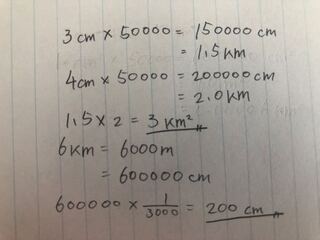 3 cm × 50000 = 150000 cm
= 1.5 km
4cm × 50000 = 200000 cm
= 2.0 km
1.5 × 2 = 3 km²
6 km = 6000m
= 600000 cm
600000 × 1/3000 = 200 cm